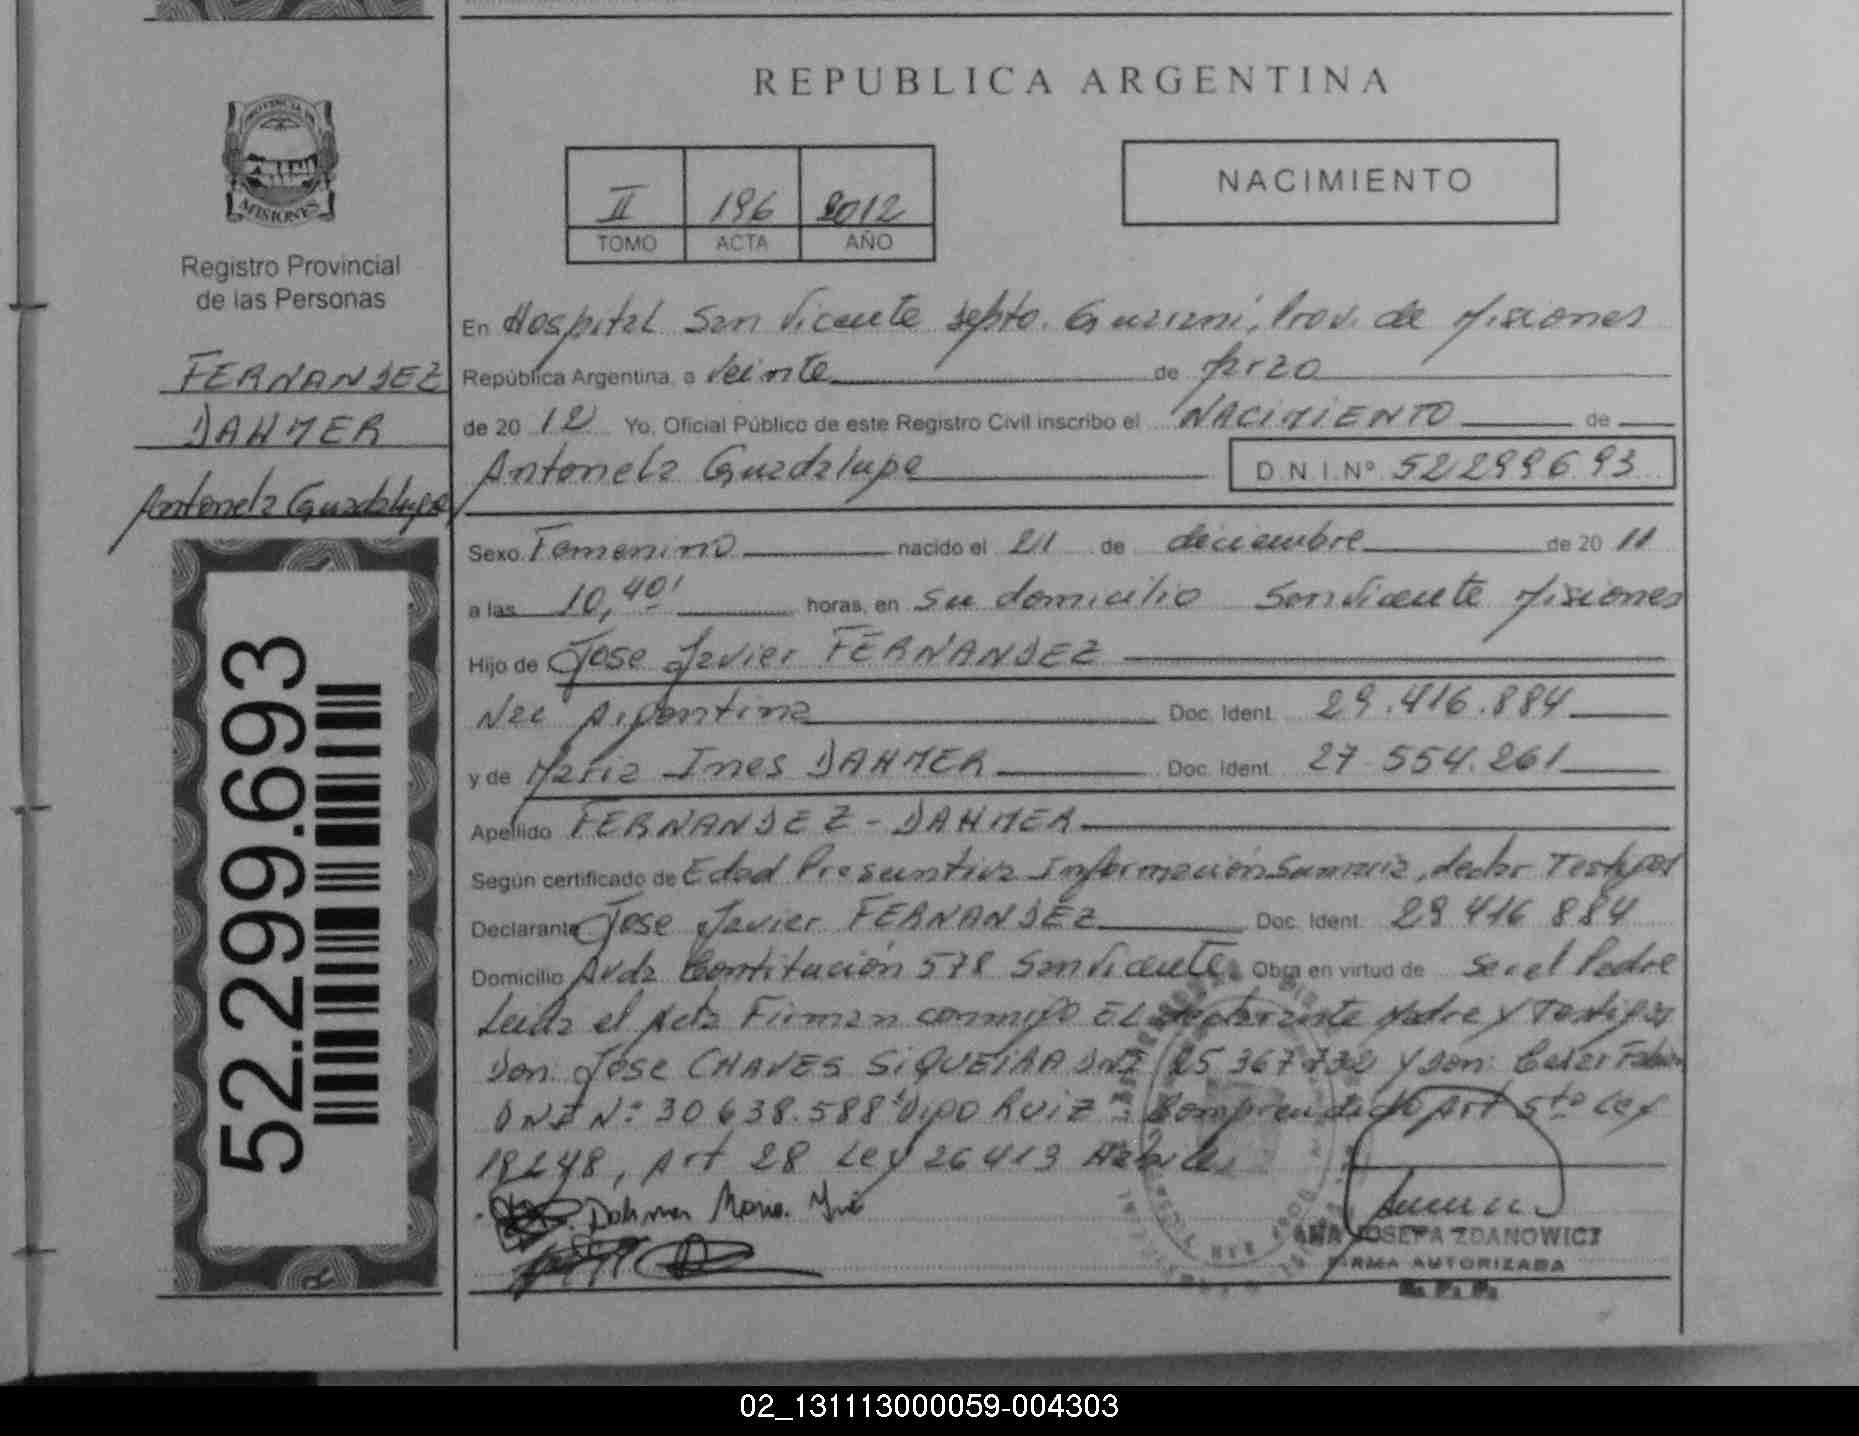 REPUBLICA ARGENTINA
PROVINCIA DE
MISIONES
Registro Provincial
de las Personas
FERNANDEZ
DAHMER
Antonela Guadalupe
52.299.693
II 196 2012
TOMO ACTA AÑO
NACIMIENTO
En Hospital San Vicente Depto. Guarani, Prov. de Misiones
República Argentina, a veinte de Marzo
de 2012 Yo, Oficial Público de este Registro Civil inscribo el NACIMIENTO de
Antonela Guadalupe D.N.I.Nº 52299693
Sexo Femenino nacido el 21 de deciembre de 2011
a las 10,40' horas, en su domicilio San Vicente Misiones
Hijo de Jose Javier FERNANDEZ
Nac Argentina Doc. Ident. 29.416.884
y de Maria Ines DAHMER Doc. Ident. 27.554.261
Apellido FERNANDEZ - DAHMER
Según certificado de Edad Presuntiva Informacion Sumaria, declar Testigos
Declarante Jose Javier FERNANDEZ Doc. Ident. 29 416 884
Domicilio Avda Contitucion 578 San Vicente Obra en virtud de ser el Padre
Leida el Acta Firman conmigo EL declarante Madre y Testigos
Don Jose CHAVES SIQUEIRA DNI 25 367 732 y Don: Cesar Fabian
DNI Nº 30 638.588 Ruiz Comprendido Art 5to Ley
18248, Art 28 Ley 26413
Dahmer Maria Ines
ANA JOSEFA ZDANOWICZ
FIRMA AUTORIZADA
R. P. P.
02_131113000059-004303